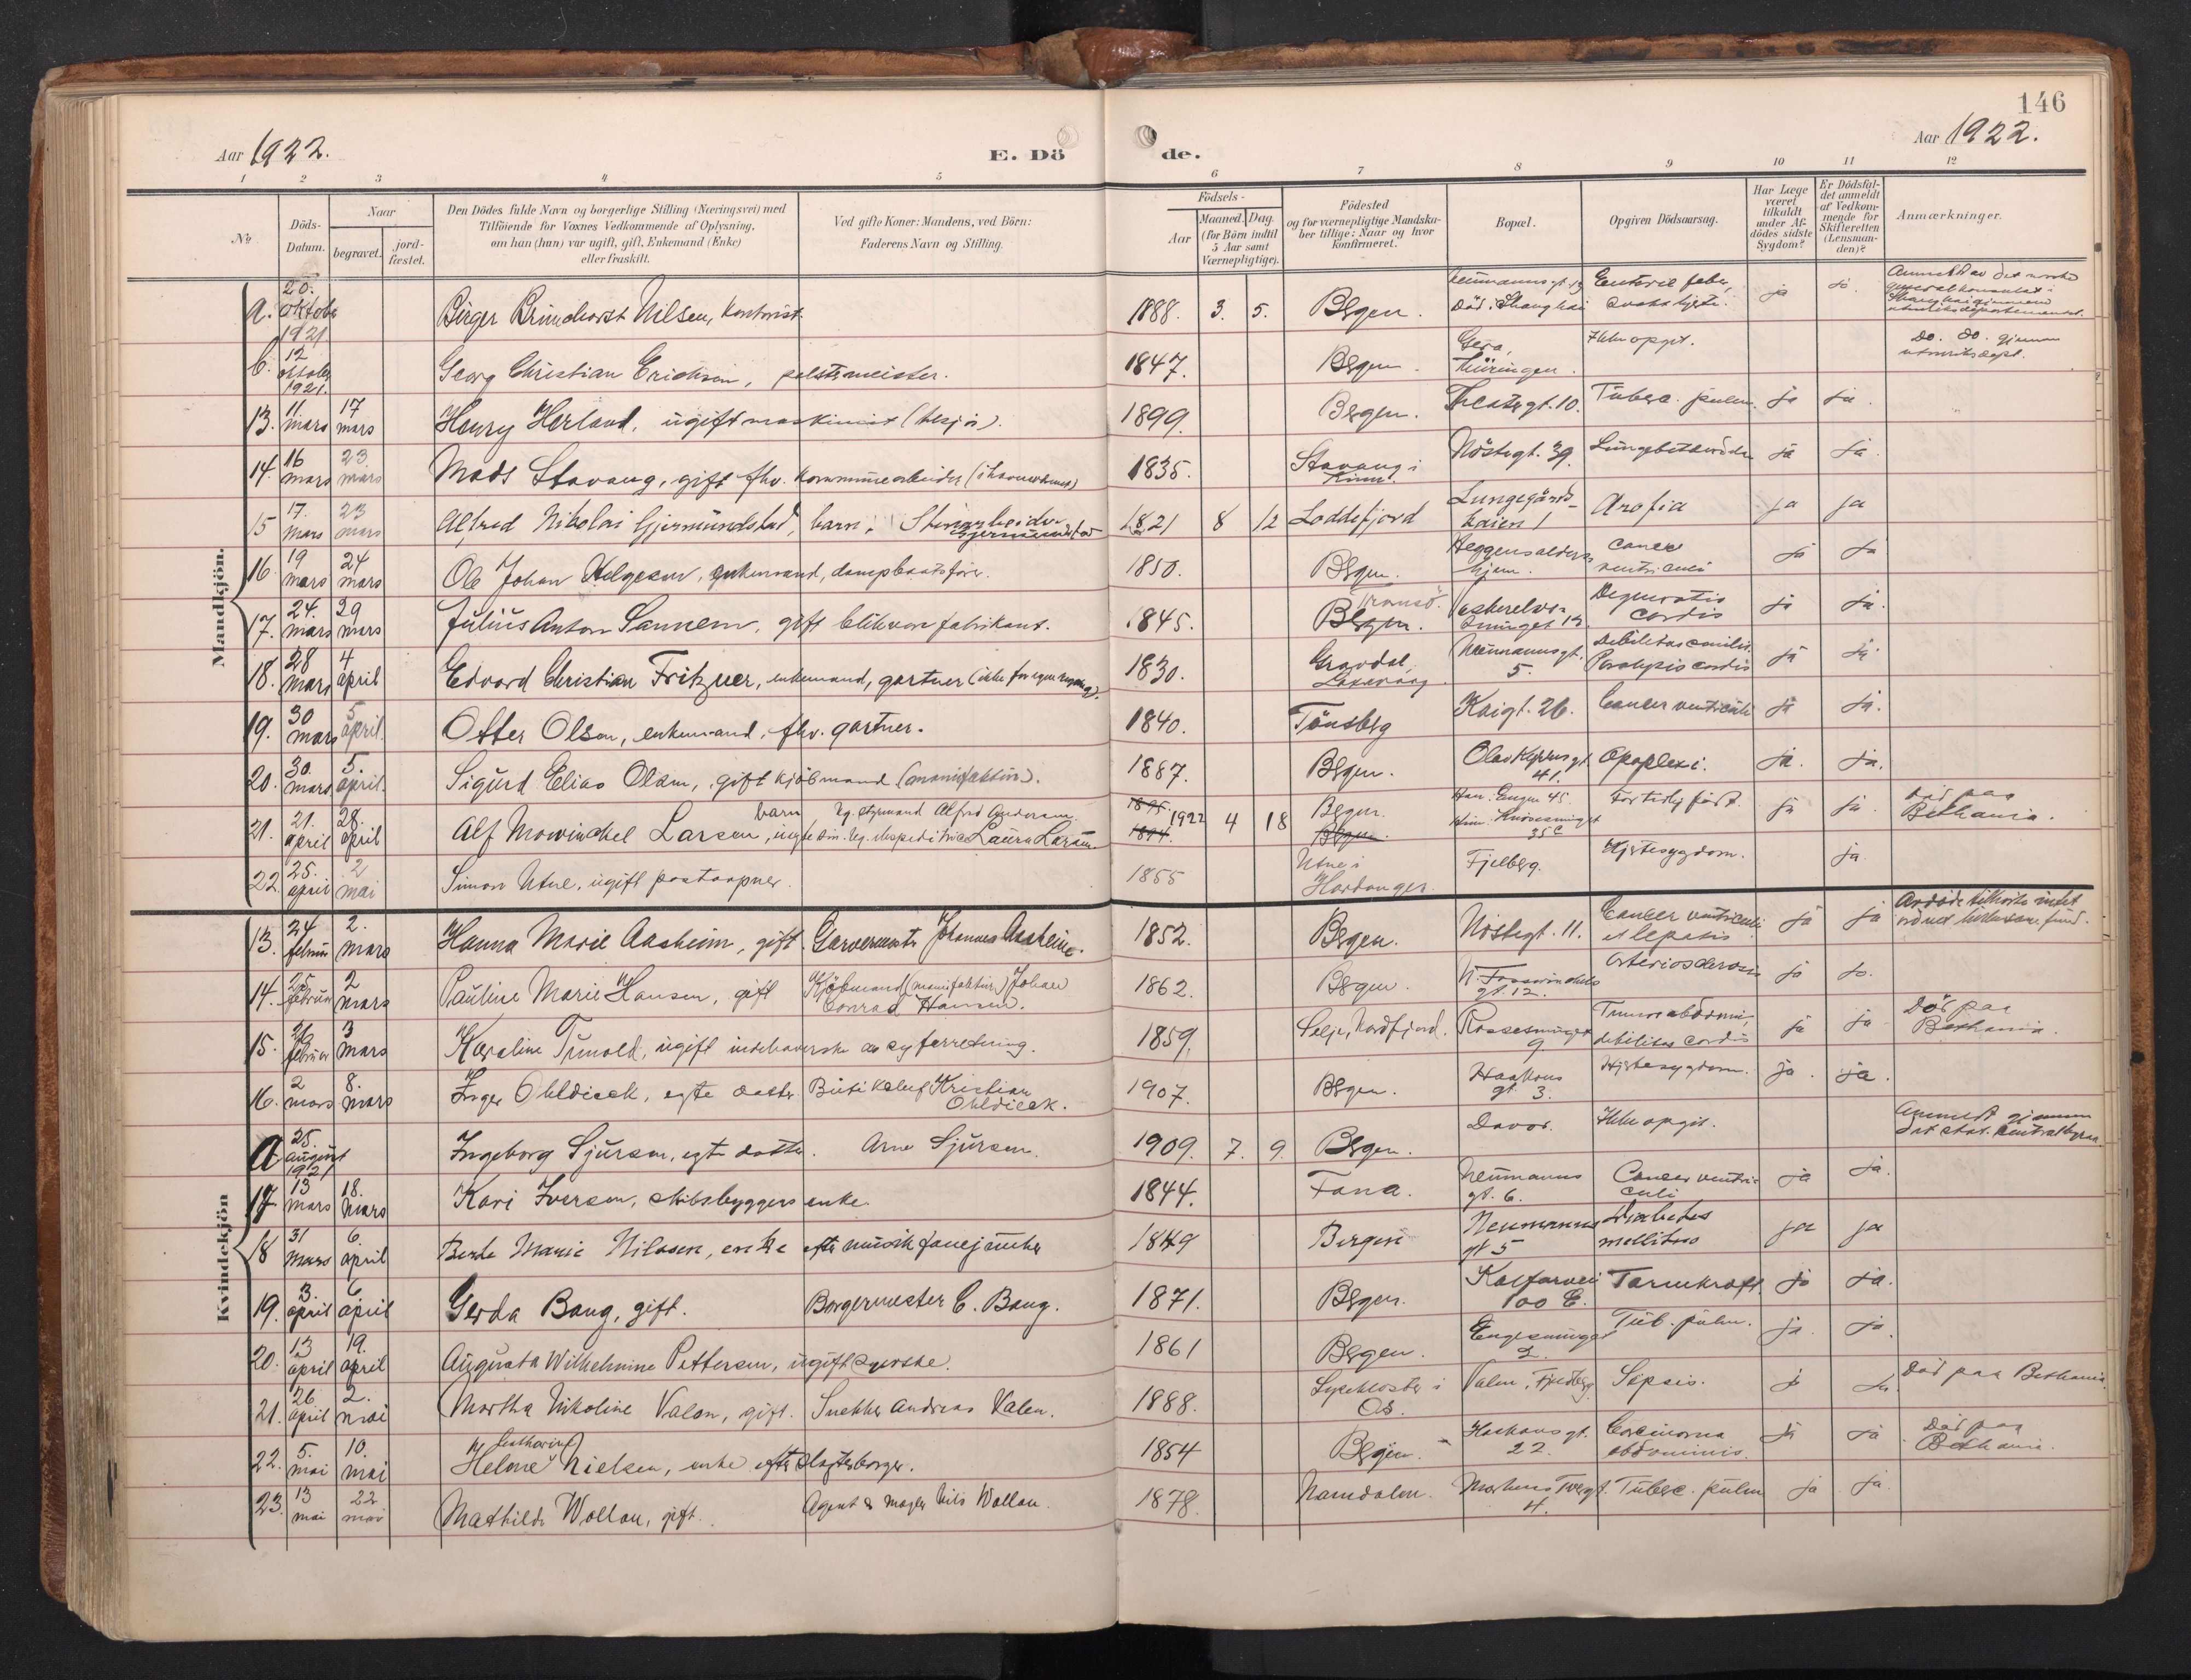 146
Aar 1922.
E. Dö
de.
Aar 1922.
1 2 3 4 5 6 7 8 9 10 11 12
No
Döds-Datum.
Naar begravet. jord-fæstet.
Den Dödes fulde Navn og borgerlige Stilling (Næringsvei) med Tilföiende for Voxnes Vedkommende af Oplysning, om han (hun) var ugift, gift, Enkemand (Enke) eller fraskilt.
Ved gifte Koner: Mandens, ved Börn: Faderens Navn og Stilling.
Födsels-
Aar Maaned. Dag. (for Börn indtil 5 Aar samt Værnepligtige).
Födested og for værnepligtige Mandskaber tillige: Naar og hvor Konfirmeret.
Bopæl.
Opgiven Dödsaarsag.
Har Læge været tilkaldt under Afdödes sidste Sygdom?
Er Dödsfaldet anmeldt af Vedkommende for Skifteretten (Lensmanden)?
Anmærkninger.
Mandkjön.
a. 20. oktober 1921 Birger Brunchorst Nilsen, kontorist 1888. 3. 5. Bergen. Neumannsgt. 13 Död i Shanghai Enteric feber, svakt hjerte. ja ja. Anmeldt av det norske generalkonsulat i Shanghai gjennem utenriksdepartementet.
b. 12 oktober 1921. Georg Christian Erichsen, 1847. Bergen Gera, Thüringen. Ikke opgit. Do. do. gjennem utenriksdept.
13. 11. mars 17 mars Henry Herland, ugift maskinist (tilsjøs). 1899. Bergen. Teatergt. 10. Tuberc. pulm. ja ja.
14. 16 mars 23 mars Mads Stavang, gift fhv. kommunearbeider (i havnevæsenet) 1835. Stavang i Kinn. Nöstegt. 39. Lungebetændelse ja ja.
15 17. mars 23 mars Alfred Nikolai Gjermundstad, barn. Stenarbeider Gjermundstad 1821 8 12 Loddefjord Lungegårds-kaien 1 Atrofia ja ja
16. 19 mars 24 mars Ole Johan Helgesen, enkemand, dampbaatsfører. 1850. Bergen. Heggens alders hjem. cancer ventriculi ja ja
17. 24. mars 29 mars Julius Anton Sannem, gift blikvarefabrikant. 1845. Bergen. Tromsö. 13. Degeneratio cordis ja ja.
18. 28 mars 4 april Edvard Christian Fritzner, enkemand, gartner (ikke for egen regning). 1830. Gravdal, Laxevaag Neumannsgt. 5. Debilitas senilis. Paralysis cordis ja ja.
19. 30 mars 5 april. Otter Olsen, enkemand, fhv. gartner. 1840. Tönsberg Kaigt. 26. Cancer ventriculi ja ja.
20. 30. mars 5. april. Sigurd Elias Olsen, gift kjöbmand (manufaktur). 1887. Bergen. Olav Kyrresgt. 41. Apoplexi. ja. ja.
21. 21. april 28. april Alf Mowinckel Larsen, barn Ug. styrmand Alfred Andersen, ug. ekspeditrice Laura Larsen. 1895 1894. 1922 4 18 Bergen. Bergen. 45. 35c For tidlig født. ja ja. Död paa Bethania.
22. 25. april 2 mai Simon Utne, ugift postaapner. 1855 Utne i Hardanger. Fjelberg. Hjertesygdom. ja.
Kvindekjön
13. 24 februar 2. mars Hanna Marie Aasheim, gift Garvermester Johannes Aasheim. 1852. Bergen. Nöstegt. 11. Cancer ventriculi et hepatis ja ja
14. 25 februar 2 mars Pauline Marie Hansen, gift Kjöbmand (manufaktur) Johan Conrad Hansen. 1862. Bergen. gt. 12. Arteriosclerosis ja ja.
15. 26 februar 3 mars Karoline Tunold, ugift indehaverske av syforretning. 1859. Selje, Nordfjord. 9. Tumor abdomini, debilitas cordis ja ja. Död paa Bethania.
16. 2 mars 8. mars Inger Ohldieck, egte datter Kristian Ohldieck. 1907. Bergen. Haakons gt. 3. Hjertesygdom. ja. ja.
a 25. august 1921 Ingeborg Sjursen, egte datter. Arne Sjursen. 1909. 7. 9. Bergen. Davos. Ikke opgit. Anmeldt gjennem det stat. centralbyraa.
17. 13 mars 18. mars Kari Iversen, skibsbyggers enke. 1844. Fana. Neumanns gt. 6. Cancer ventriculi ja ja.
18 31 mars 6. april Berte Marie Nilssen, enke efter musikfanejunker 1849 Bergen Neumanns gt 5 Diabetes mellitus ja ja
19. 3. april 6 april Gerda Bang, gift. Borgermester C. Bang. 1871. Bergen. Kalfarvei 100 C. Tarmkræft. ja ja.
20. 13 april 19. april Augusta Wilhelmine Pettersen, ugift syerske. 1861 Bergen. Engesmuget 2. Tub. pulm. ja ja.
21. 26. april 2. mai Martha Nikoline Valen, gift. Snekker Andreas Valen. 1888. Lysekloster i Os. Valen, Fjelberg. Sepsis. ja ja. Död paa Bethania.
22. 5. mai 10. mai Helene Cathrine Nielsen, enke efter slagterborger. 1854 Bergen. Haakonsgt. 22. Carcinoma abdominis. ja ja Död paa Bethania.
23. 13 mai 22 mai Mathilde Wollan, gift. Agent & mægler Nils Wollan. 1878. Namdalen. 4. Tuberc. pulm ja ja.